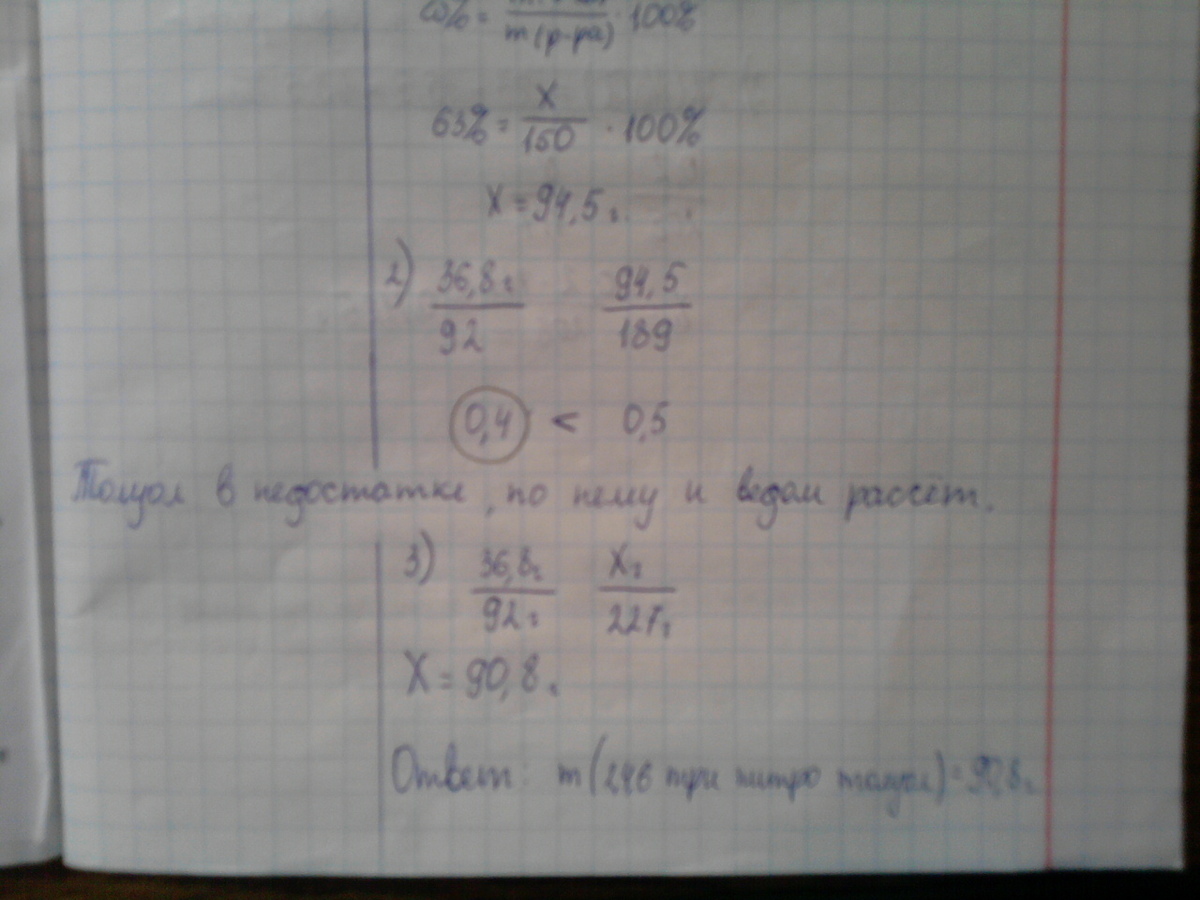 ω% = m(р-ра) · 100%
63% = X/150 · 100%
X = 94,5 г.
2) 36,8 г/92 94,5/189
0,4 < 0,5
Толуол в недостатке, по нему и ведом расчёт.
3) 36,8г/92г Xг/227г
X = 90,8 г.
Ответ: m(246 три нитро толуол) = 90,8 г.